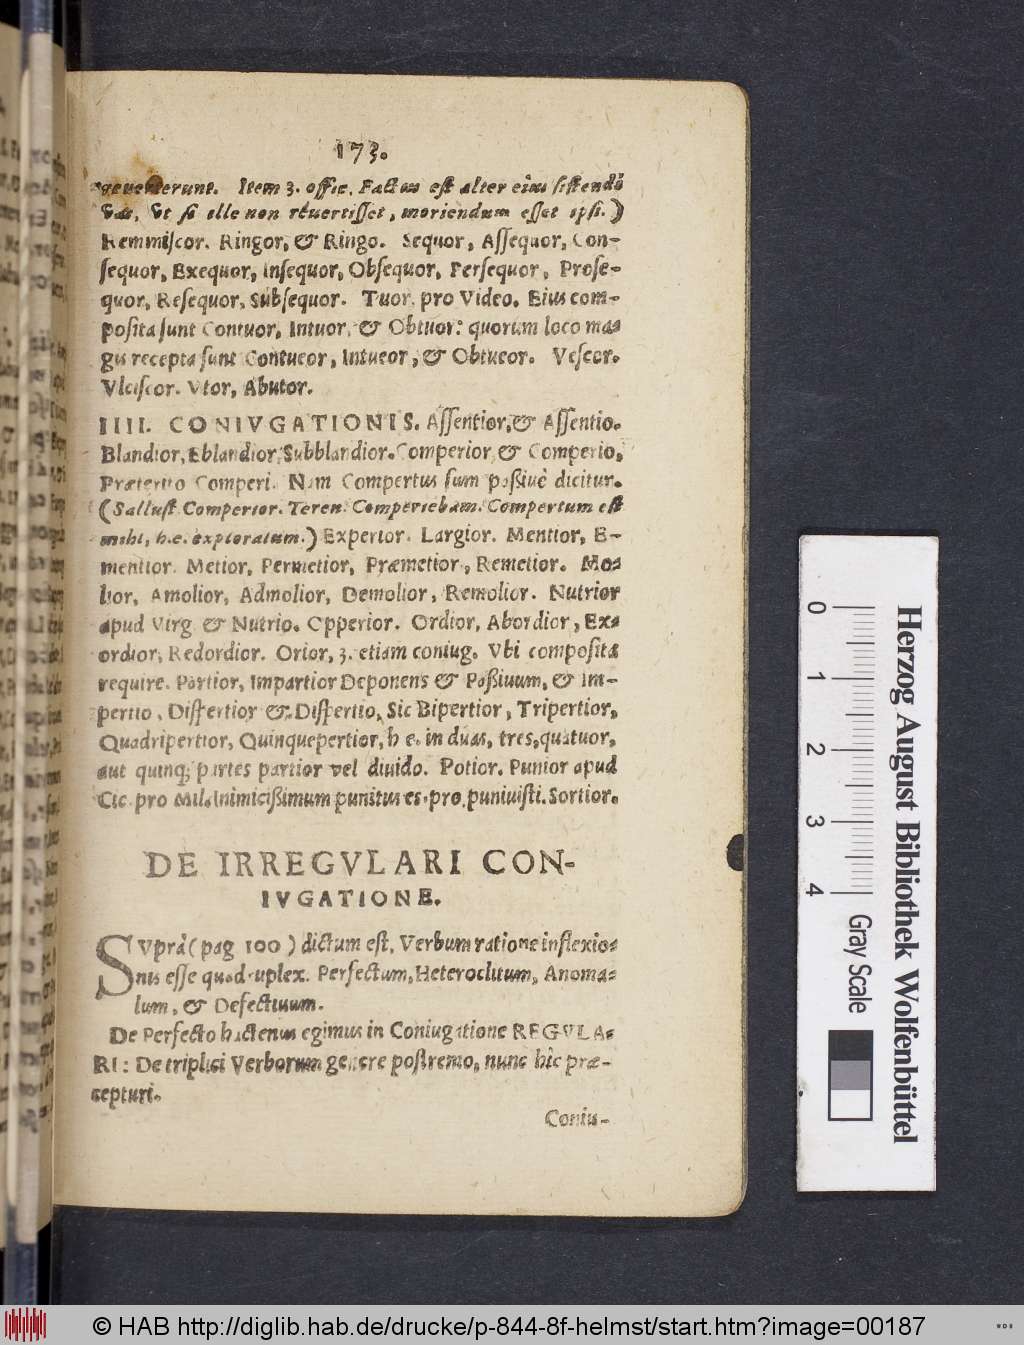 173.
Item 3. offic. Factus est alter eius sistendi
vas, vt si ille non reuertisset, moriendum esset ipsi.)
Reminiscor. Ringor, & Ringo. Sequor, Assequor, Con-
sequor, Exequor, Insequor, Obsequor, Persequor, Prose-
quor, Resequor, Subsequor. Tuor, pro Video. Eius com-
posita sunt Contuor, Intuor, & Obtuor: quorum loco ma-
gis recepta sunt Contueor, Intueor, & Obtueor. Vescor.
Vlciscor. Vtor, Abutor.
IIII. CONIVGATIONIS. Assentior, & Assentio.
Blandior, Eblandior, Subblandior. Comperior, & Comperio,
Præterito Comperi. Nam Compertus sum paßiuè dicitur.
(Sallust. Comperior. Teren. Comperiebam. Compertum est
mihi, h.e. exploratum.) Experior. Largior. Mentior, E-
mentior. Metior, Permetior, Præmetior, Remetior. Mo-
lior, Amolior, Admolior, Demolior, Remolior. Nutrior
apud Virg. & Nutrio. Opperior. Ordior, Abordior, Ex-
ordior, Redordior. Orior, 3. etiam coniug. Vbi composita
require. Partior, Impartior Deponens & Paßiuum, & Im-
pertio, Dispertior & Dispertio, Sic Bipertior, Tripertior,
Quadripertior, Quinquepertior, h e. in duas, tres, quatuor,
aut quinq; partes partior vel diuido. Potior. Punior apud
Cic. pro Mil. Inimicißimum punitus es, pro, puniuisti. Sortior.
DE IRREGVLARI CON-
IVGATIONE.
SVprà (pag 100) dictum est, Verbum ratione inflexio-
nis esse quadruplex. Perfectum, Heteroclitum, Anoma-
lum, & Defectiuum.
De Perfecto hactenus egimus in Coniugatione REGVLA-
RI: De triplici Verborum genere postremo, nunc hîc præ-
cepturi.
Coniu-
0 1 2 3 4
Herzog August Bibliothek Wolfenbüttel
Gray Scale
© HAB http://diglib.hab.de/drucke/p-844-8f-helmst/start.htm?image=00187